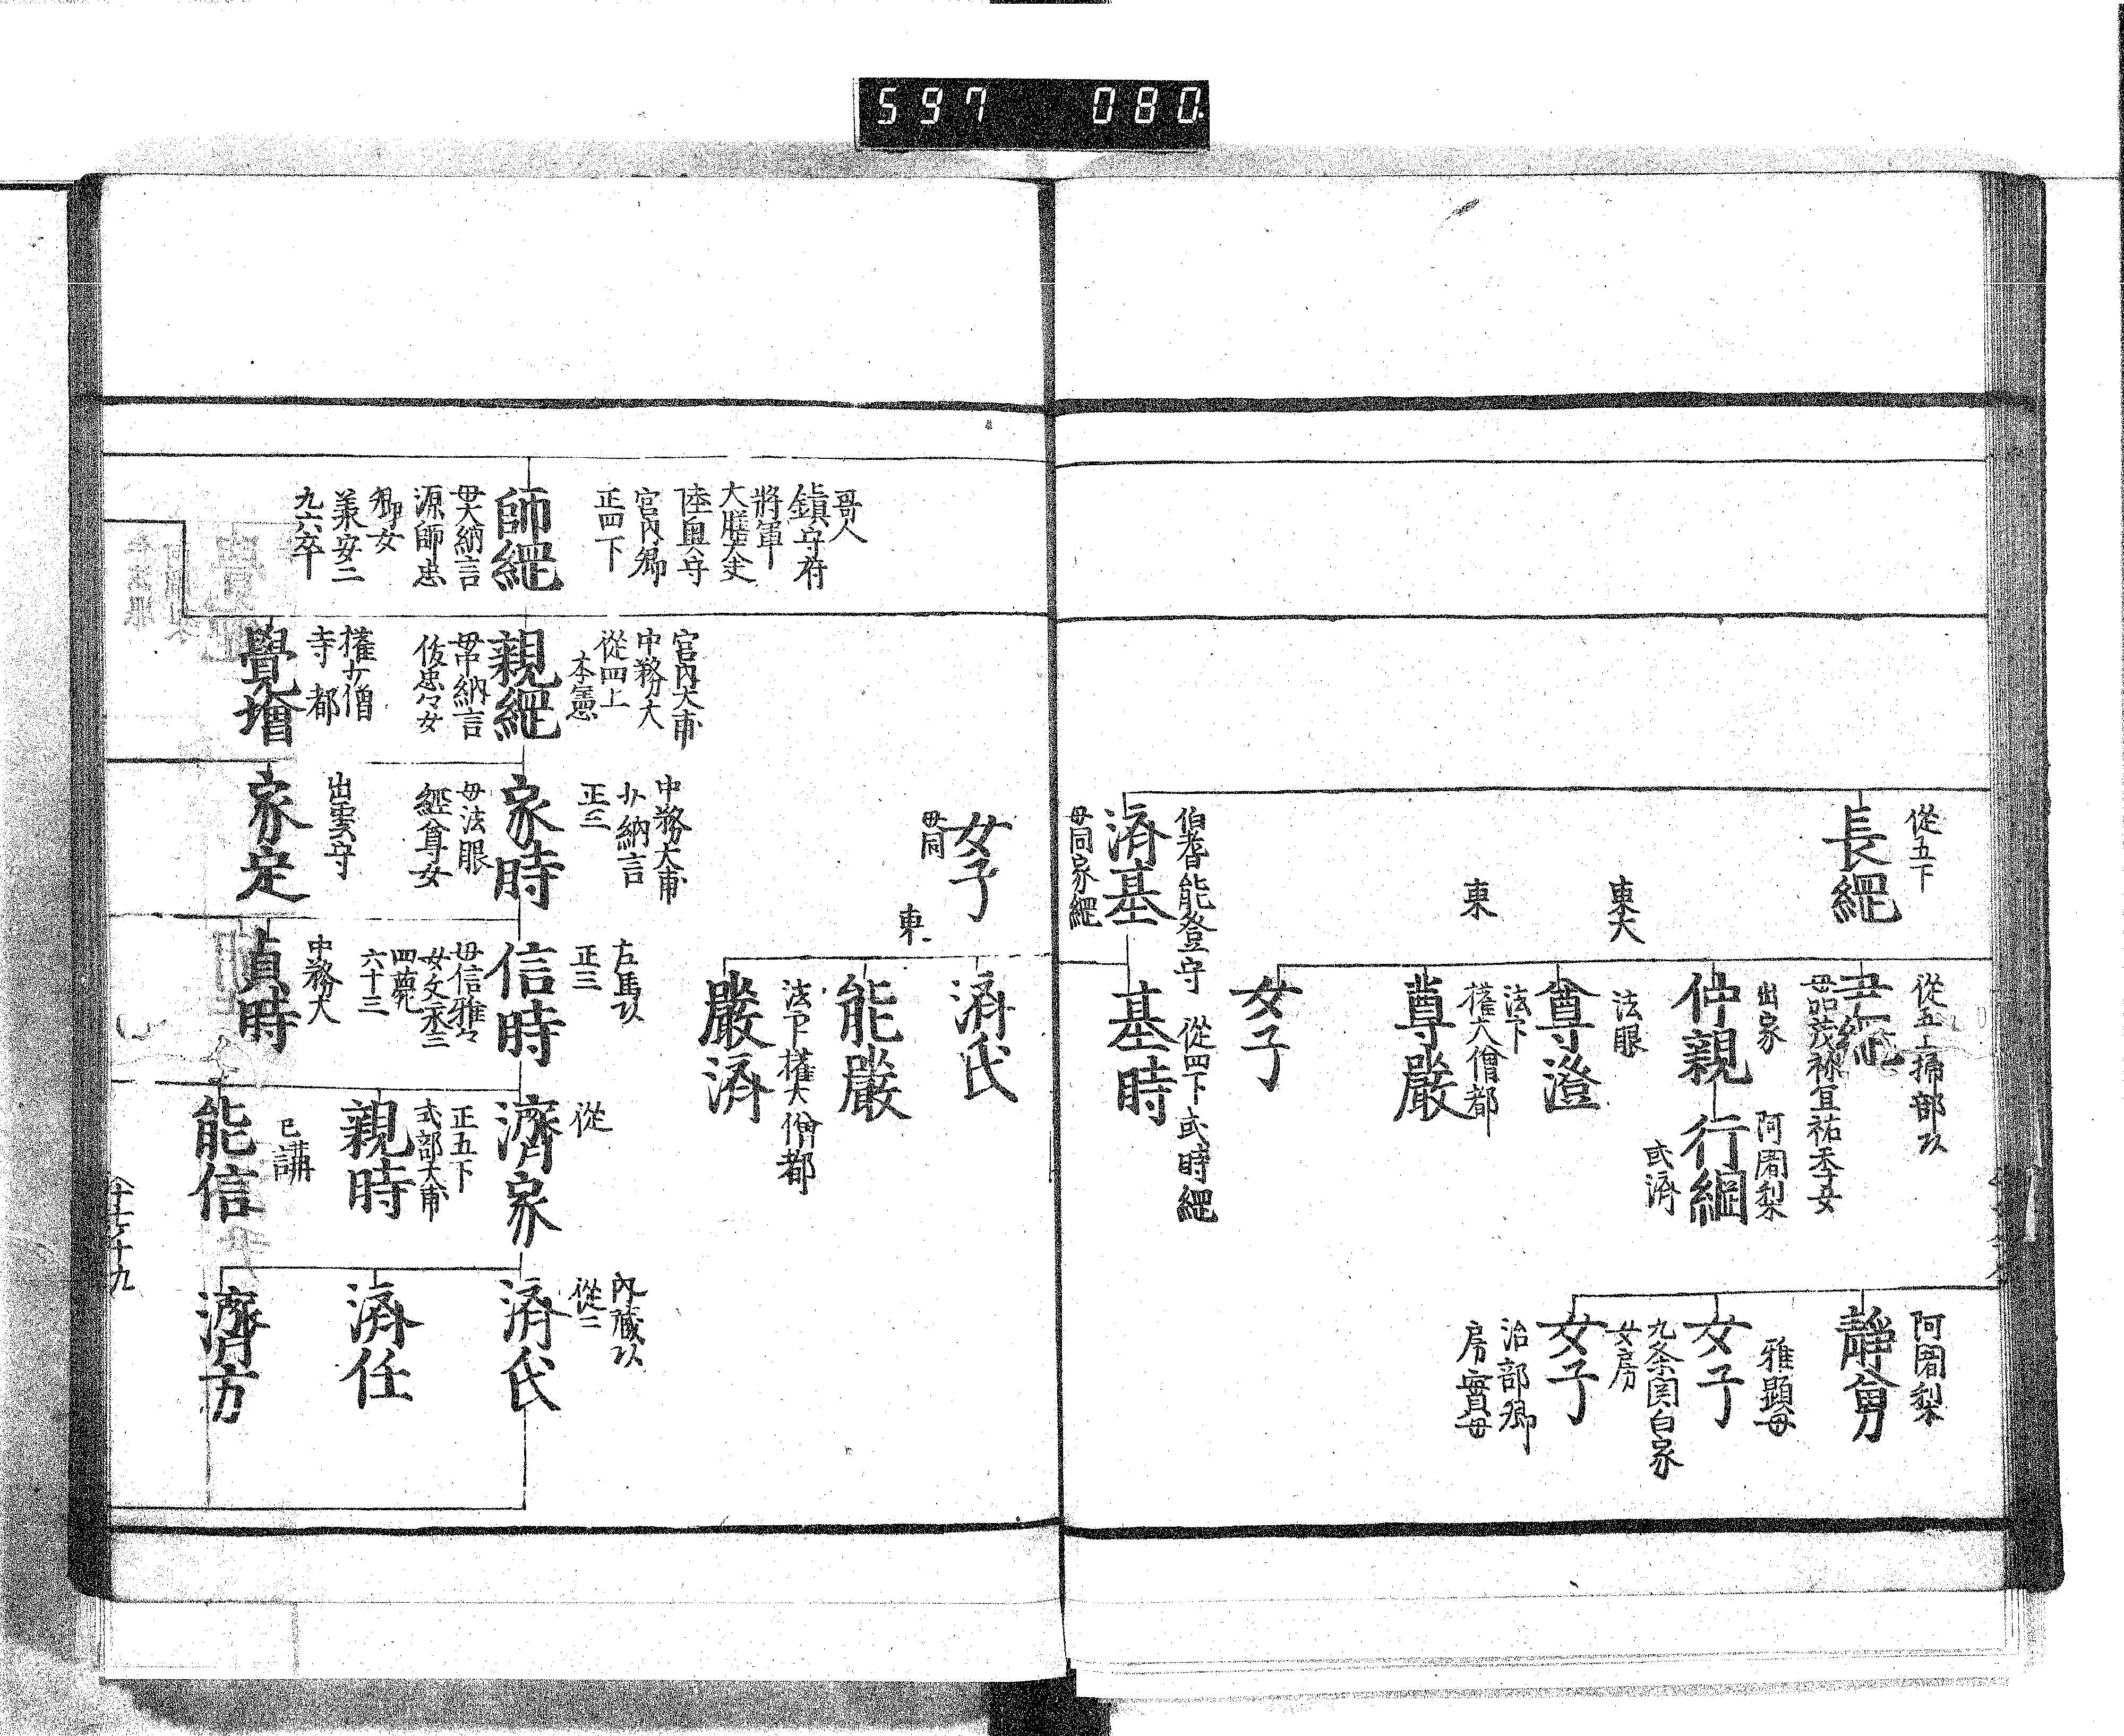 597 080
從五下
長經
濟基
伯耆能登守 從四下 或時經
母同家經
從五上掃部以
尹經
出家
仲親
阿闍梨
行綱
或濟
東大
法眼
尊澄
東
法下
權大僧都
尊嚴
女子
基時
阿闍梨
靜勇
雅顯母
女子
九条関白家
女房
女子
治部卿
房實母
女子
母同
濟氏
東
能嚴
法下權大僧都
嚴濟
哥人
鎮守府
將軍
大膳大夫
陸奥守
宮内卿
正四下
師經
母大納言
源師忠
卿女
義安二
九六卒
宮内大甫
中務大
從四上
本憲
親經
母中納言
俊忠々女
權少僧
寺 都
覺增
中務大甫
少納言
正三
家時
母法眼
經尊女
出雲守
家定
左馬以
正三
信時
母信雅々
女文永三
四薨
六十三
中務大
貞時
從
濟家
正五下
式部大甫
親時
已講
能信
内蔵以
從二
濟氏
濟任
濟方